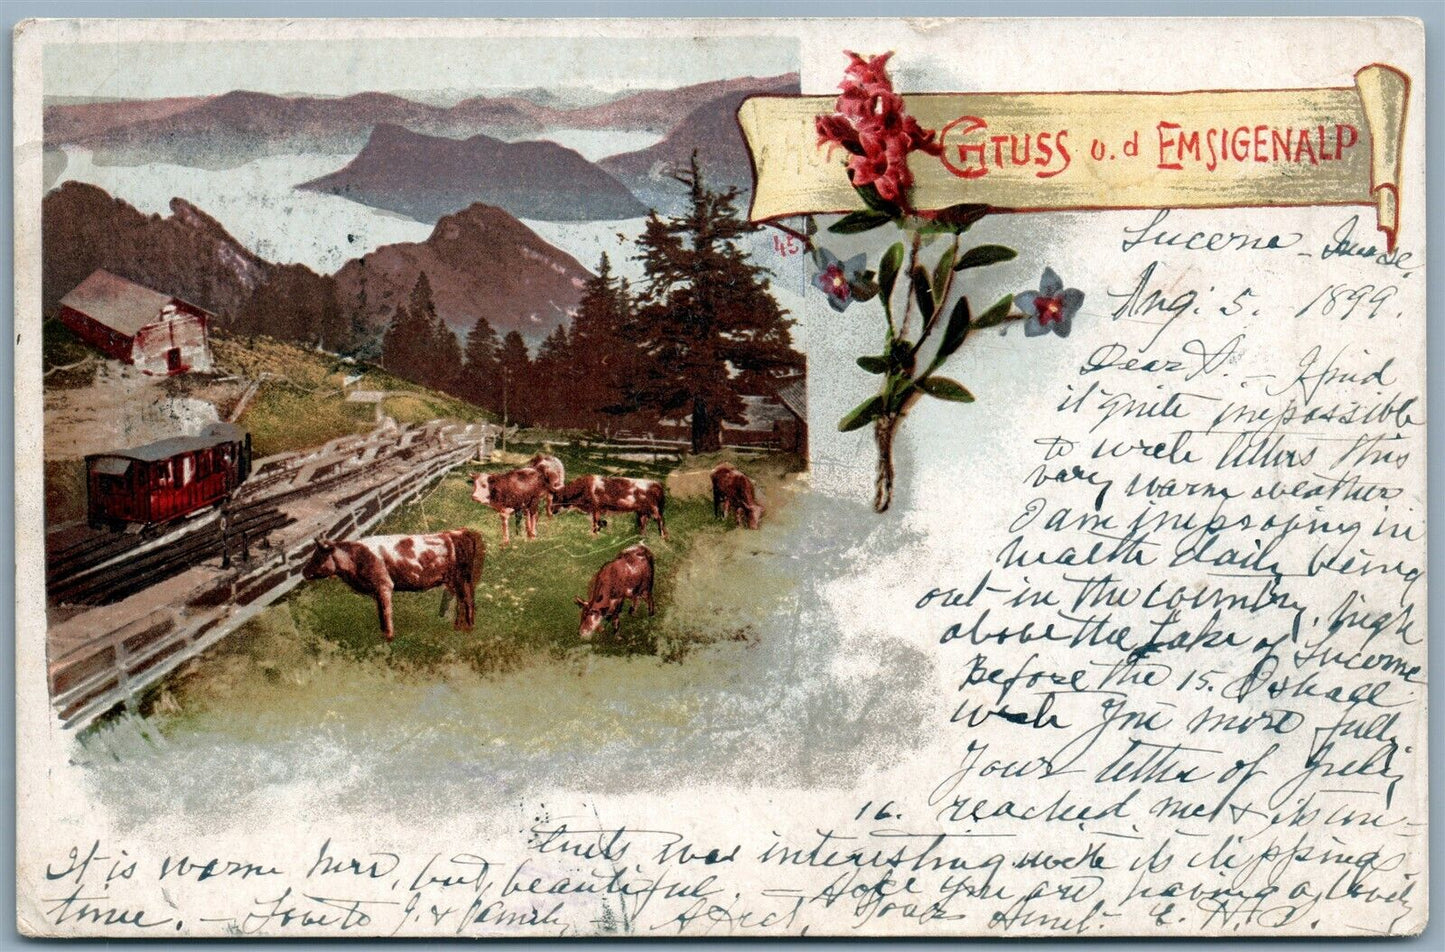 GRUSS v. d EMSIGENALP
45
Lucerne - Suisse.
Aug: 5. 1899.
Dear S. - I find
it quite impossible
to write letters this
very warm weather
I am improving in
health daily being
out in the country, high
above the Lake of Lucerne
Before the 15. I shall
write you more fully
Your letter of July
16. reached me & its con-
tents was interesting with its clippings
It is warm here, but beautiful. - Hope you are having a lovely
time. - Love to J. & family - Aunt E. H. D.